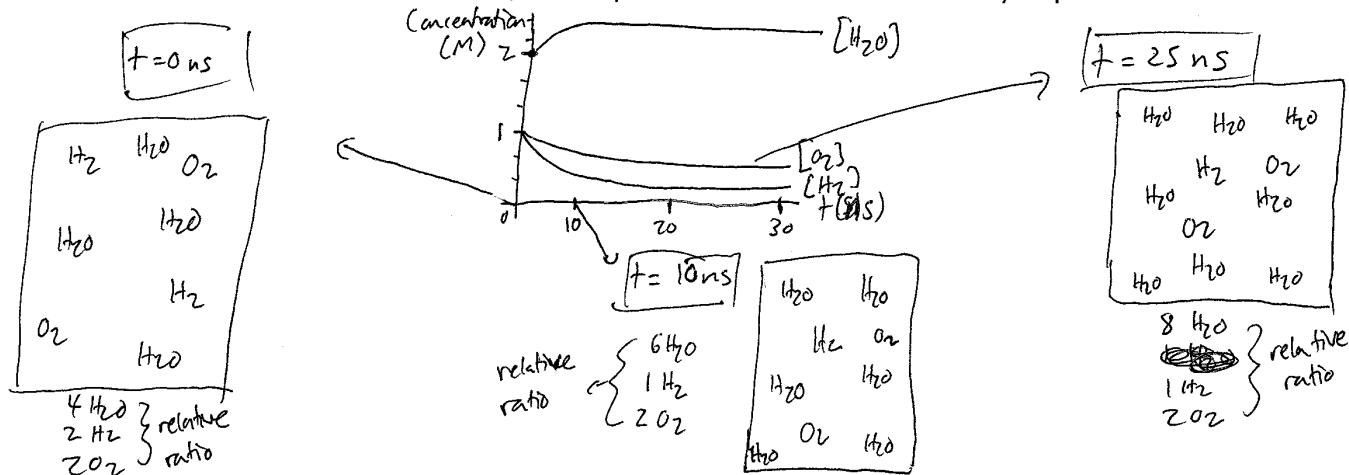 t=0 ns
H2 H2O O2
H2O
H2O
H2
O2
H2O
4 H2O
2 H2
2 O2
relative
ratio
Concentration
(M)
2
1
0
10
20
30
[H2O]
[O2]
[H2]
t = 10 ns
relative
ratio
6 H2O
1 H2
2 O2
H2O H2O
H2 O2
H2O H2O
O2
H2O H2O
t = 25 ns
H2O H2O H2O
H2 O2
H2O H2O
O2
H2O H2O H2O
8 H2O
1 H2
2 O2
relative
ratio